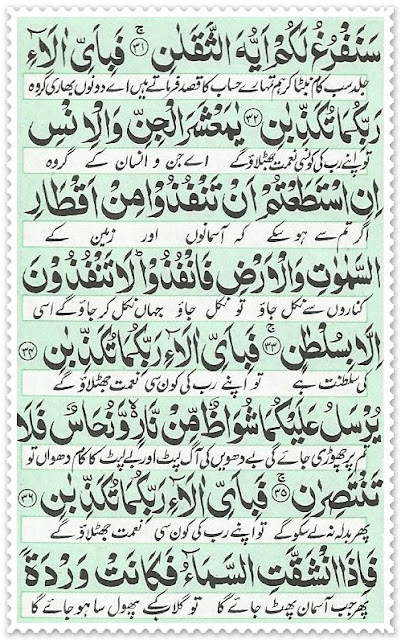 سَنَفْرُغُ لَكُمْ اَيُّهَ الثَّقَلٰنِ ۚ﴿۳۱﴾ فَبِاَىِّ اٰلَآءِ
جلد سب کام نبٹا کر ہم تمہارے حساب کا قصد فرماتے ہیں اے دونوں بھاری گروہ
رَبِّكُمَا تُكَذِّبٰنِ ﴿۳۲﴾ يٰمَعْشَرَ الْجِنِّ وَالْاِنْسِ
تو اپنے رب کی کونسی نعمت جھٹلاؤ گے اے جن و انسان کے گروہ
اِنِ اسْتَطَعْتُمْ اَنْ تَنْفُذُوْا مِنْ اَقْطَارِ
اگر تم سے ہو سکے کہ آسمانوں اور زمین کے
السَّمٰوٰتِ وَالْاَرْضِ فَانْفُذُوْا ؕ لَا تَنْفُذُوْنَ
کناروں سے نکل جاؤ تو نکل جاؤ جہاں نکل کر جاؤ گے اسی
اِلَّا بِسُلْطٰنٍ ۚ﴿۳۳﴾ فَبِاَىِّ اٰلَآءِ رَبِّكُمَا تُكَذِّبٰنِ ﴿۳۴﴾
کی سلطنت ہے تو اپنے رب کی کون سی نعمت جھٹلاؤ گے
يُرْسَلُ عَلَيْكُمَا شُوَاظٌ مِّنْ نَّارٍ ۙ وَّنُحَاسٌ فَلَا
تم پر چھوڑی جائے گی بے دھویں کی آگ لپٹ اور بے لپٹ کا کالا دھواں تو
تَنْتَصِرٰنِ ۚ﴿۳۵﴾ فَبِاَىِّ اٰلَآءِ رَبِّكُمَا تُكَذِّبٰنِ ﴿۳۶﴾
پھر بدلہ نہ لے سکو گے تو اپنے رب کی کون سی نعمت جھٹلاؤ گے
فَاِذَا انْشَقَّتِ السَّمَآءُ فَكَانَتْ وَرْدَةً
پھر جب آسمان پھٹ جائے گا تو گلاب کے پھول سا ہو جائے گا